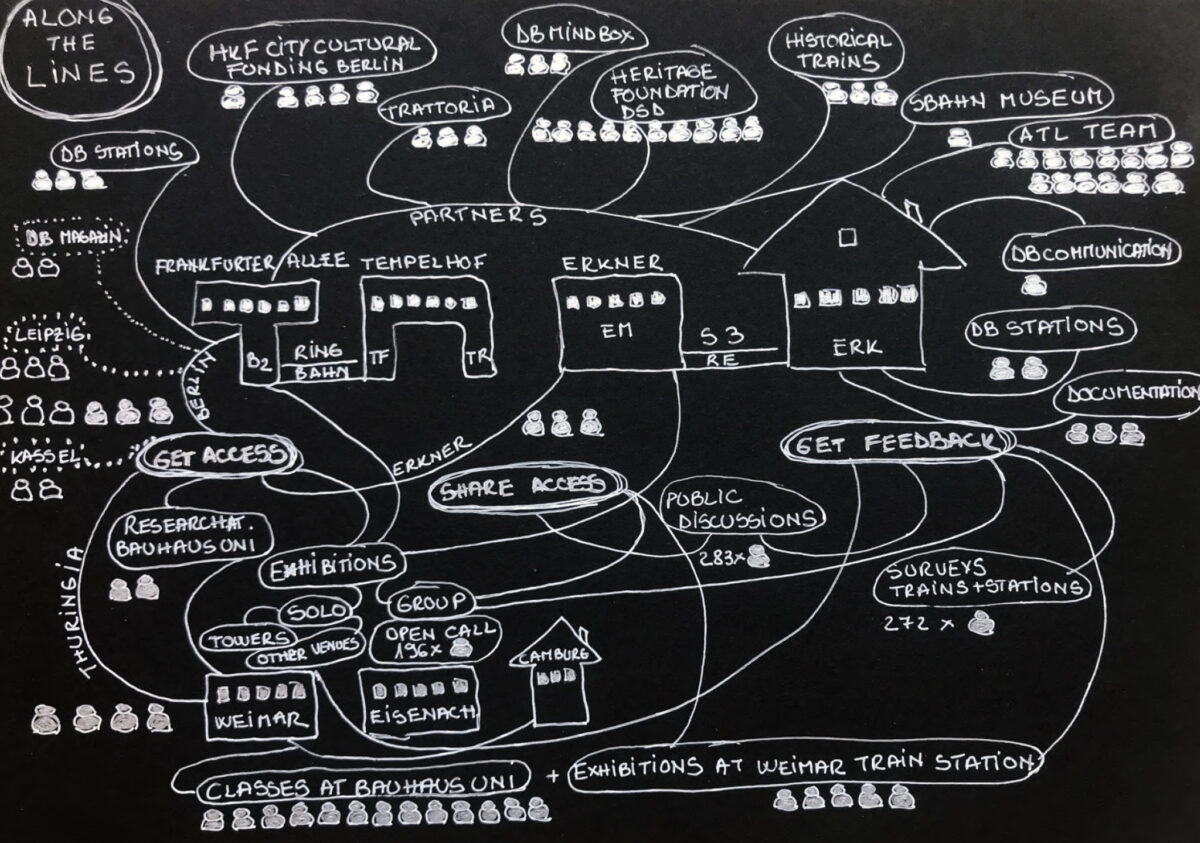 ALONG
THE
LINES
HKF CITY CULTURAL
FUNDING BERLIN
DB MINDBOX
HISTORICAL
TRAINS
TRATTORIA
HERITAGE
FOUNDATION
DSD
SBAHN MUSEUM
ATL TEAM
DB STATIONS
PARTNERS
DB MAGAZIN
FRANKFURTER ALLEE
TEMPELHOF
ERKNER
DB COMMUNICATION
LEIPZIG
BERLIN
B2
RING
BAHN
TF
TR
EM
S3
RE
ERK
DB STATIONS
DOCUMENTATION
KASSEL
GET ACCESS
ERKNER
SHARE ACCESS
GET FEEDBACK
RESEARCH AT.
BAUHAUS UNI
PUBLIC
DISCUSSIONS
283x
EXHIBITIONS
SURVEYS
TRAINS + STATIONS
272 x
THURINGIA
SOLO
GROUP
TOWERS
OTHER VENUES
OPEN CALL
196x
CAMBURG
WEIMAR
EISENACH
CLASSES AT BAUHAUS UNI + EXHIBITIONS AT WEIMAR TRAIN STATION